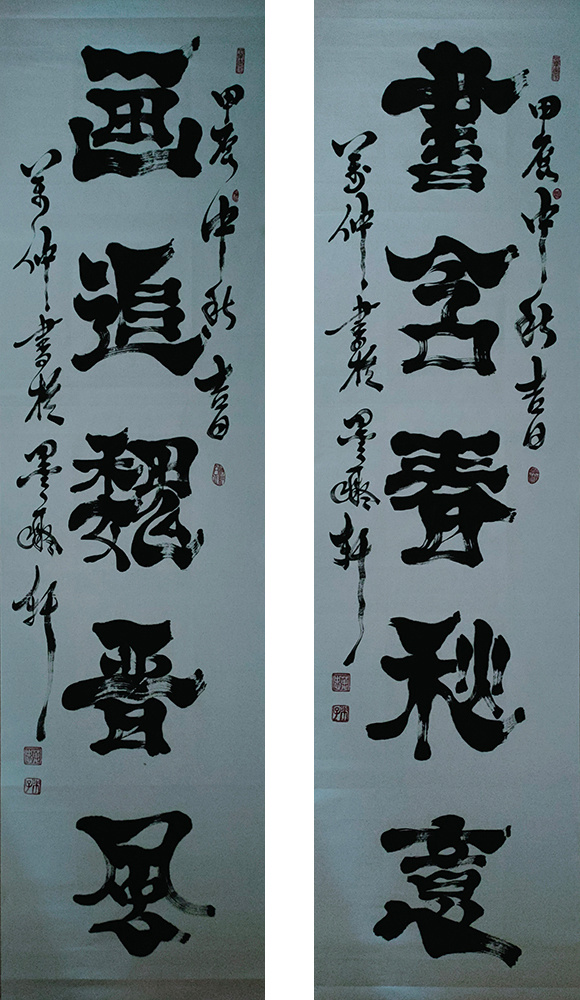 甲辰中秋吉日
書含春秋意
仲書於墨轩
甲辰中秋吉日
画追魏晋風
仲書於墨轩